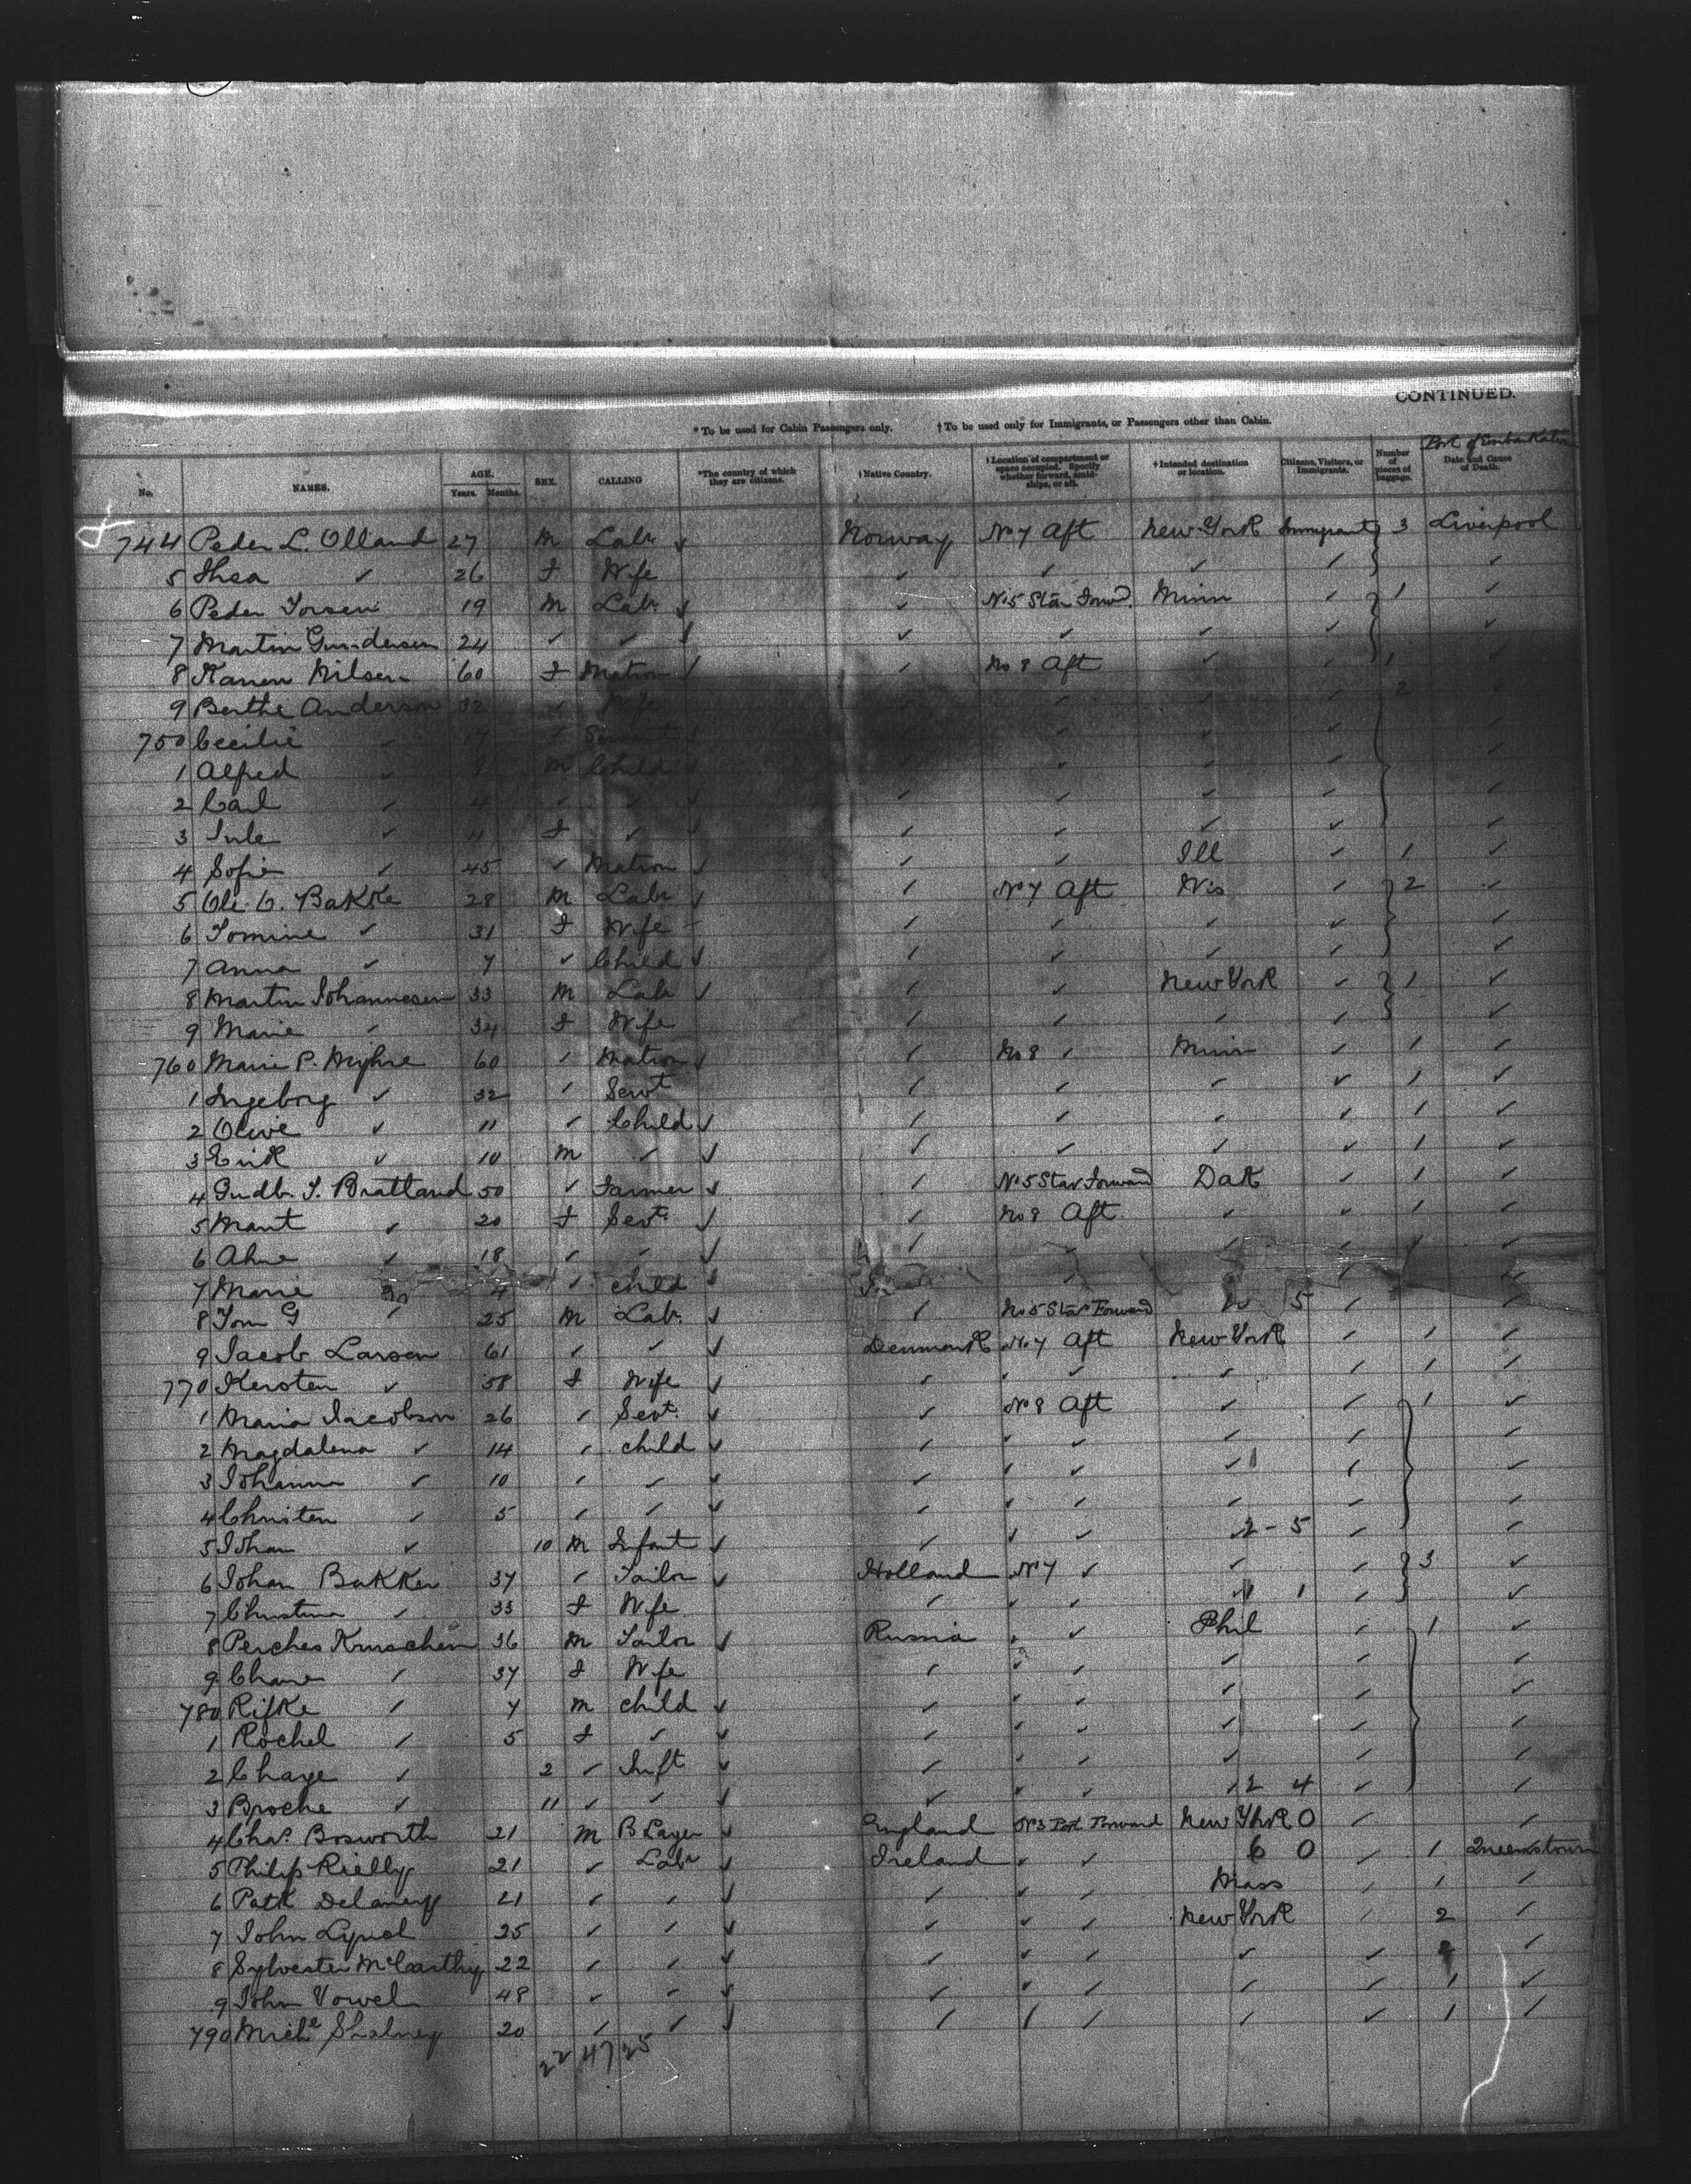 CONTINUED.
* To be used for Cabin Passengers only. † To be used only for Immigrants, or Passengers other than Cabin.
Port of Embarkation
No. NAMES. AGE. Years. Months. SEX. CALLING *The country of which they are citizens. †Native Country. †Location of compartment or space occupied. Specify whether forward, amidships, or aft. †Intended destination or location. Citizens, Visitors, or Immigrants. Number of pieces of baggage. Date and Cause of Death.
744 Peder L. Olland 27 M Labr ✓ Norway No 7 Aft New York Immigrant 3 Liverpool
5 Thea ✓ 26 F Wife ✓ ✓ ✓ ✓ ✓
6 Peder 19 M Labr ✓ ✓ No 5 Star Forwd. Minn ✓ 1 ✓
7 Martin Gundersen 24 ✓ ✓ ✓ ✓ ✓ ✓ ✓ ✓
8 Karen Nilsen 60 F Matron ✓ ✓ No 8 Aft ✓ ✓ 1
9 Berthe Anderson 32 ✓ Wife ✓ ✓ ✓ 2
750 Cecilie ✓ 17 ✓ Servant ✓ ✓ ✓ ✓ ✓
1 Alfred ✓ 8 M Child ✓ ✓ ✓ ✓ ✓
2 Carl ✓ 4 ✓ ✓ ✓ ✓ ✓ ✓ ✓ ✓
3 ✓ 11 F ✓ ✓ ✓ ✓ ✓ ✓ ✓
4 Sofie ✓ 45 ✓ Matron ✓ ✓ ✓ Ill ✓ 1 ✓
5 Ole C. Bakke 28 M Labr ✓ ✓ No 7 Aft Wis ✓ 2 ✓
6 Tomine ✓ 31 F Wife ✓ ✓ ✓ ✓ ✓
7 Anna ✓ 7 ✓ Child ✓ ✓ ✓ ✓ ✓ ✓
8 Martin Johannesen 33 M Labr ✓ ✓ ✓ New York ✓ 1 ✓
9 Marie ✓ 34 F Wife ✓ ✓ ✓ ✓ ✓
760 Marie P. Myhre 60 ✓ Matron ✓ ✓ No 8 ✓ Minn ✓ 1 ✓
1 Ingeborg ✓ 32 ✓ Servt ✓ ✓ ✓ ✓ 1 ✓
2 Olive ✓ 11 ✓ Child ✓ ✓ ✓ ✓ ✓ 1 ✓
3 Erik ✓ 10 M ✓ ✓ ✓ ✓ ✓ ✓ 1 ✓
4 Gudb. T. Bratland 50 ✓ Farmer ✓ ✓ No 5 Star Forward Dak ✓ 1 ✓
5 Marit ✓ 20 F Sevt. ✓ ✓ No 8 Aft. ✓ ✓ 1 ✓
6 ✓ 18 ✓ ✓ ✓ ✓ ✓ ✓ ✓ 1 ✓
7 Marie 4 ✓ child ✓ ✓ ✓ ✓
8 Tom G ✓ 25 M Labr. ✓ ✓ No 5 Star Forward 5 ✓
9 Jacob Larsen 61 ✓ ✓ ✓ Denmark No 7 Aft New York ✓ 1 ✓
770 Kersten ✓ 58 F Wife ✓ ✓ ✓ ✓ ✓ ✓ 1 ✓
1 Maria Jacobson 26 ✓ Sevt. ✓ ✓ No 8 Aft ✓ ✓ 1 ✓
2 Magdalena ✓ 14 ✓ child ✓ ✓ ✓ ✓ ✓ ✓
3 Johanna ✓ 10 ✓ ✓ ✓ ✓ ✓ ✓ ✓ ✓ ✓
4 Christen ✓ 5 ✓ ✓ ✓ ✓ ✓ ✓ ✓ ✓ ✓
5 Johan ✓ 10 M Infant ✓ ✓ ✓ ✓ 2 - 5 ✓ ✓
6 Johan Bakker 37 ✓ Tailor ✓ Holland No 7 ✓ ✓ ✓ 3 ✓
7 Christina ✓ 33 F Wife ✓ ✓ ✓ 1 ✓ ✓
8 Perches 36 M Tailor ✓ Russia ✓ ✓ Phil ✓ 1 ✓
9 Chane ✓ 37 F Wife ✓ ✓ ✓ ✓ ✓ ✓
780 Rifke ✓ 7 M child ✓ ✓ ✓ ✓ ✓ ✓ ✓
1 Rochel ✓ 5 F ✓ ✓ ✓ ✓ ✓ ✓ ✓ ✓
2 Chaye ✓ 2 ✓ Inft ✓ ✓ ✓ ✓ ✓ ✓ ✓
3 Broche ✓ 11 ✓ ✓ ✓ ✓ ✓ ✓ 2 4 ✓ ✓
4 Chas. Bosworth 21 M B Layer ✓ England No 3 Port Forward New York 0 ✓ ✓
5 Philip Rielly 21 ✓ Labr ✓ Ireland ✓ ✓ 6 0 ✓ 1 Queenstown
6 Patk Delaney 21 ✓ ✓ ✓ ✓ ✓ ✓ Mass ✓ 1 ✓
7 John Lynch 25 ✓ ✓ ✓ ✓ ✓ ✓ New York ✓ 2 ✓
8 Sylvester McCarthy 22 ✓ ✓ ✓ ✓ ✓ ✓ ✓ ✓ ✓
9 John Vowel 48 ✓ ✓ ✓ ✓ ✓ ✓ ✓ ✓ 1 ✓
790 Michl 20 ✓ ✓ ✓ ✓ ✓ ✓ ✓ ✓ 1 ✓
22 47 25